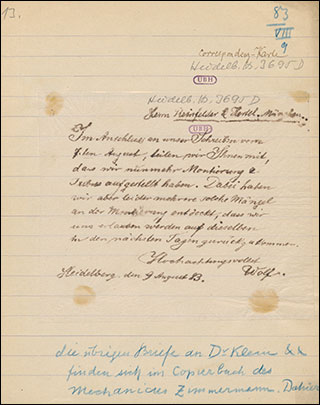 13.
83
VIII
9
Correspondenz-Karte
Heidelb. Hs. 3695 D
UBH
Heidelb. Hs. 3695 D
Herrn Reinfelder & Hertel, München.
UBH
Im Anschluss an unser Schreiben vom
August, teilen wir Ihnen mit,
dass wir nunmehr Montierung &
aufgestellt haben. Dabei haben
wir aber leider mehrere solche Mängel
an der Montierung entdeckt, dass wir
uns erlauben werden auf dieselben
in den nächsten Tagen zurückzukommen.
Hochachtungsvollst
Heidelberg, den 9 August 83. Wolf.
die übrigen Briefe an Dr Klein &&
finden sich im Copierbuch des
Mechanicus Zimmermann. Dahier